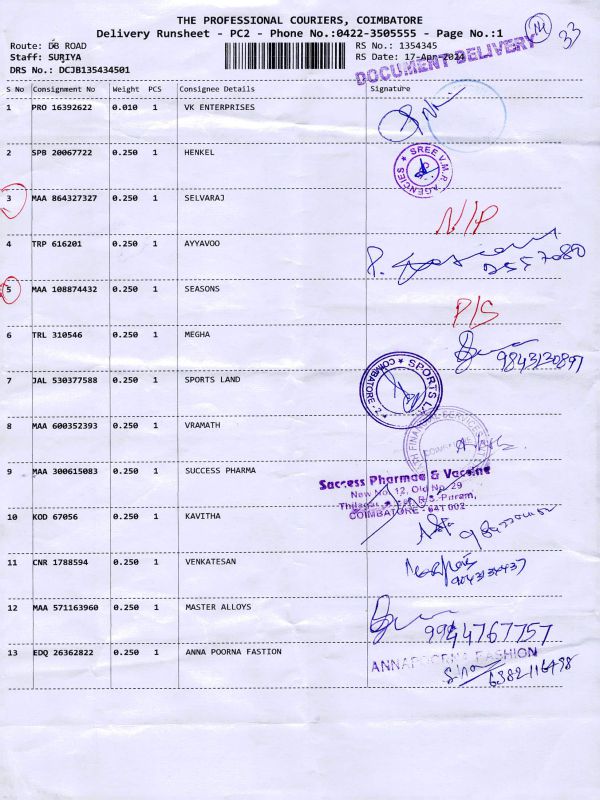 THE PROFESSIONAL COURIERS, COIMBATORE
Delivery Runsheet - PC2 - Phone No.:0422-3505555 - Page No.:1
Route: DB ROAD RS No.: 1354345
Staff: SURIYA RS Date: 17-Apr-2024
DRS No.: DCJB135434501
DOCUMENT DELIVERY
33
S No Consignment No Weight PCS Consignee Details Signature
1 PRO 16392622 0.010 1 VK ENTERPRISES
2 SPB 20067722 0.250 1 HENKEL
SREE V.M.R. AGENCIES
3 MAA 864327327 0.250 1 SELVARAJ
N/P
4 TRP 616201 0.250 1 AYYAVOO
5 MAA 108874432 0.250 1 SEASONS
P/S
6 TRL 310546 0.250 1 MEGHA
9843130897
7 JAL 530377588 0.250 1 SPORTS LAND
COIMBATORE-2 SPORTS
8 MAA 600352393 0.250 1 VRAMATH
COIMBATORE
9 MAA 300615083 0.250 1 SUCCESS PHARMA
Success Pharma & Vaccine
New No. 12, Old No. 29
R.S. Puram,
COIMBATORE - 641 002
10 KOD 67056 0.250 1 KAVITHA
11 CNR 1788594 0.250 1 VENKATESAN
12 MAA 571163960 0.250 1 MASTER ALLOYS
9944767757
13 EDQ 26362822 0.250 1 ANNA POORNA FASTION
ANNAPOORNA FASHION
6382116498